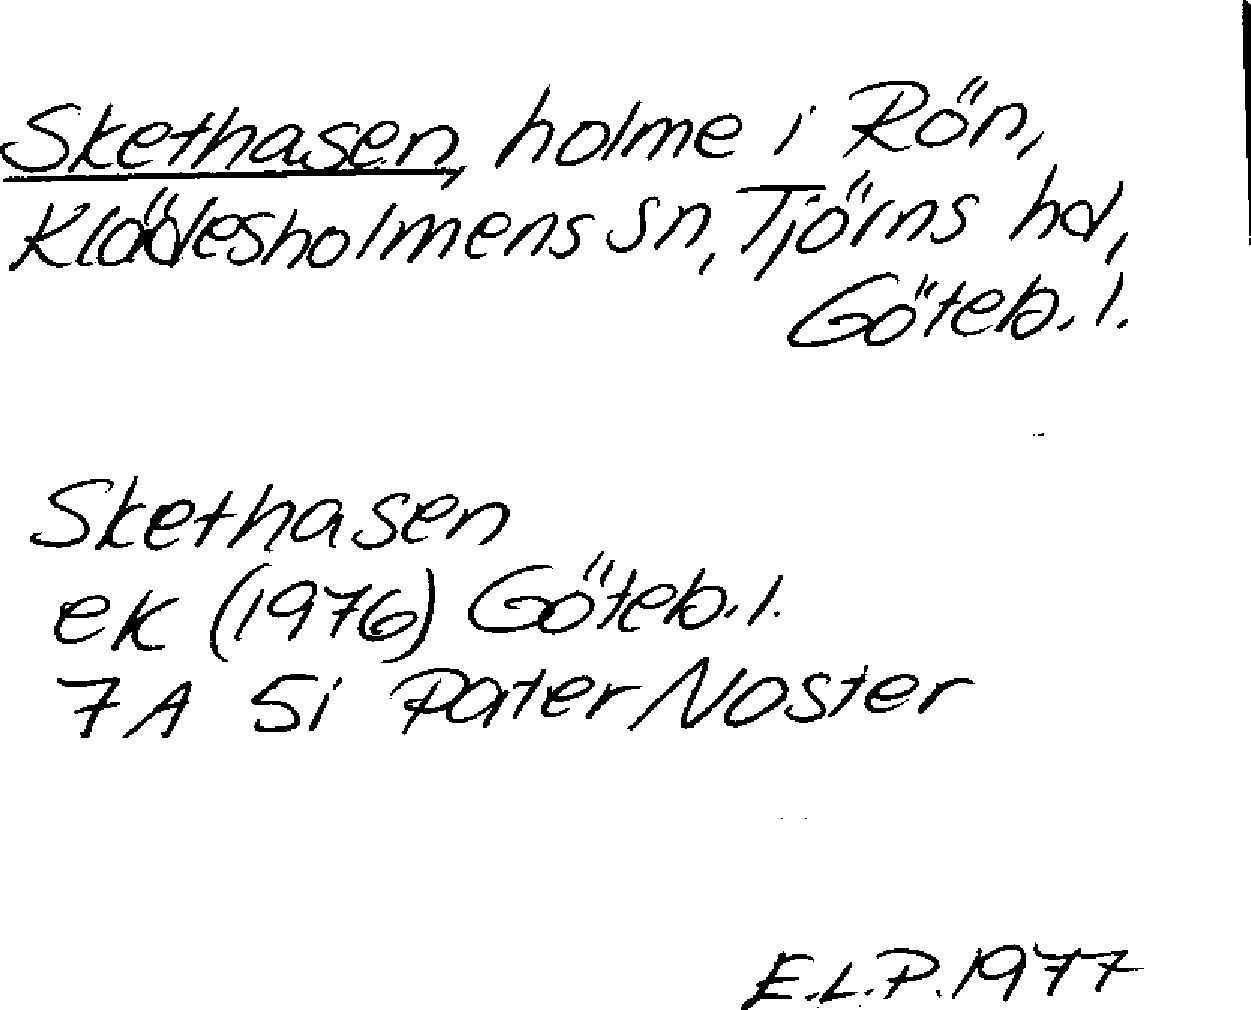 Skethasen, holme i Rön,
Klädesholmens sn, Tjörns hd,
Göteb. l.
Skethasen
ek (1976) Göteb. l.
7A 5i Pater Noster
E.L.P. 1977